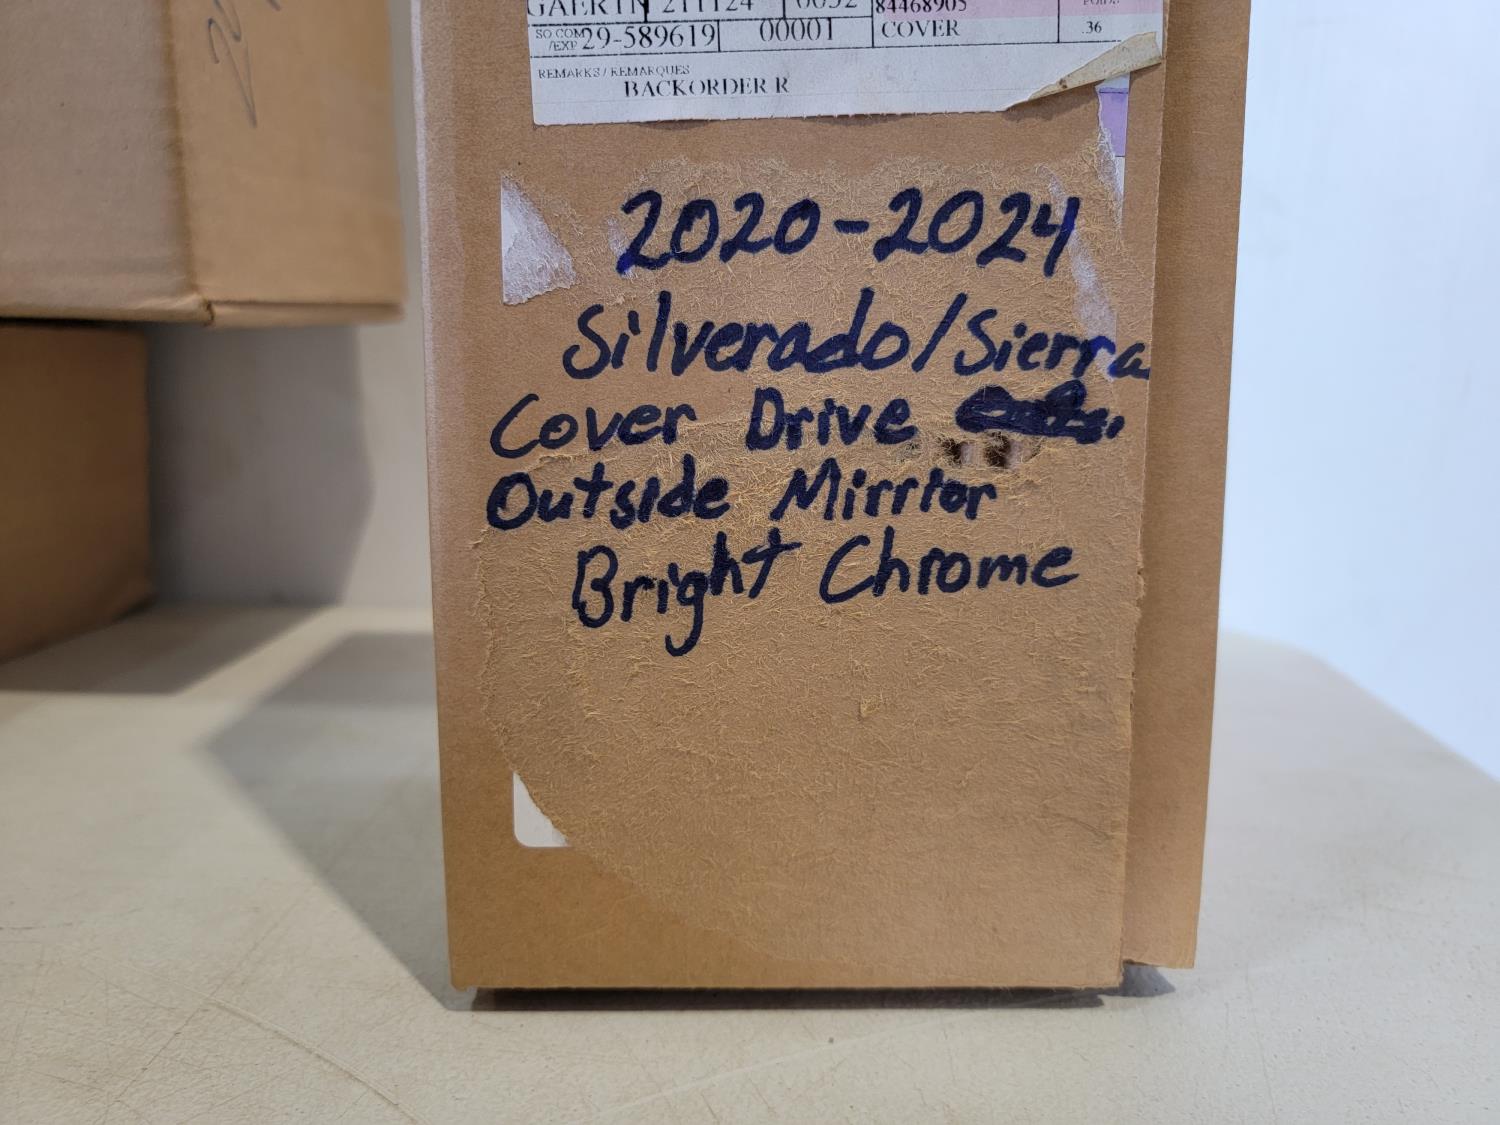 84468905
SO COM /EXP 29-589619 00001 COVER .36
REMARKS / REMARQUES
BACKORDER R
2020-2024
Silverado/Sierra
Cover Drive
Outside Mirrior
Bright Chrome